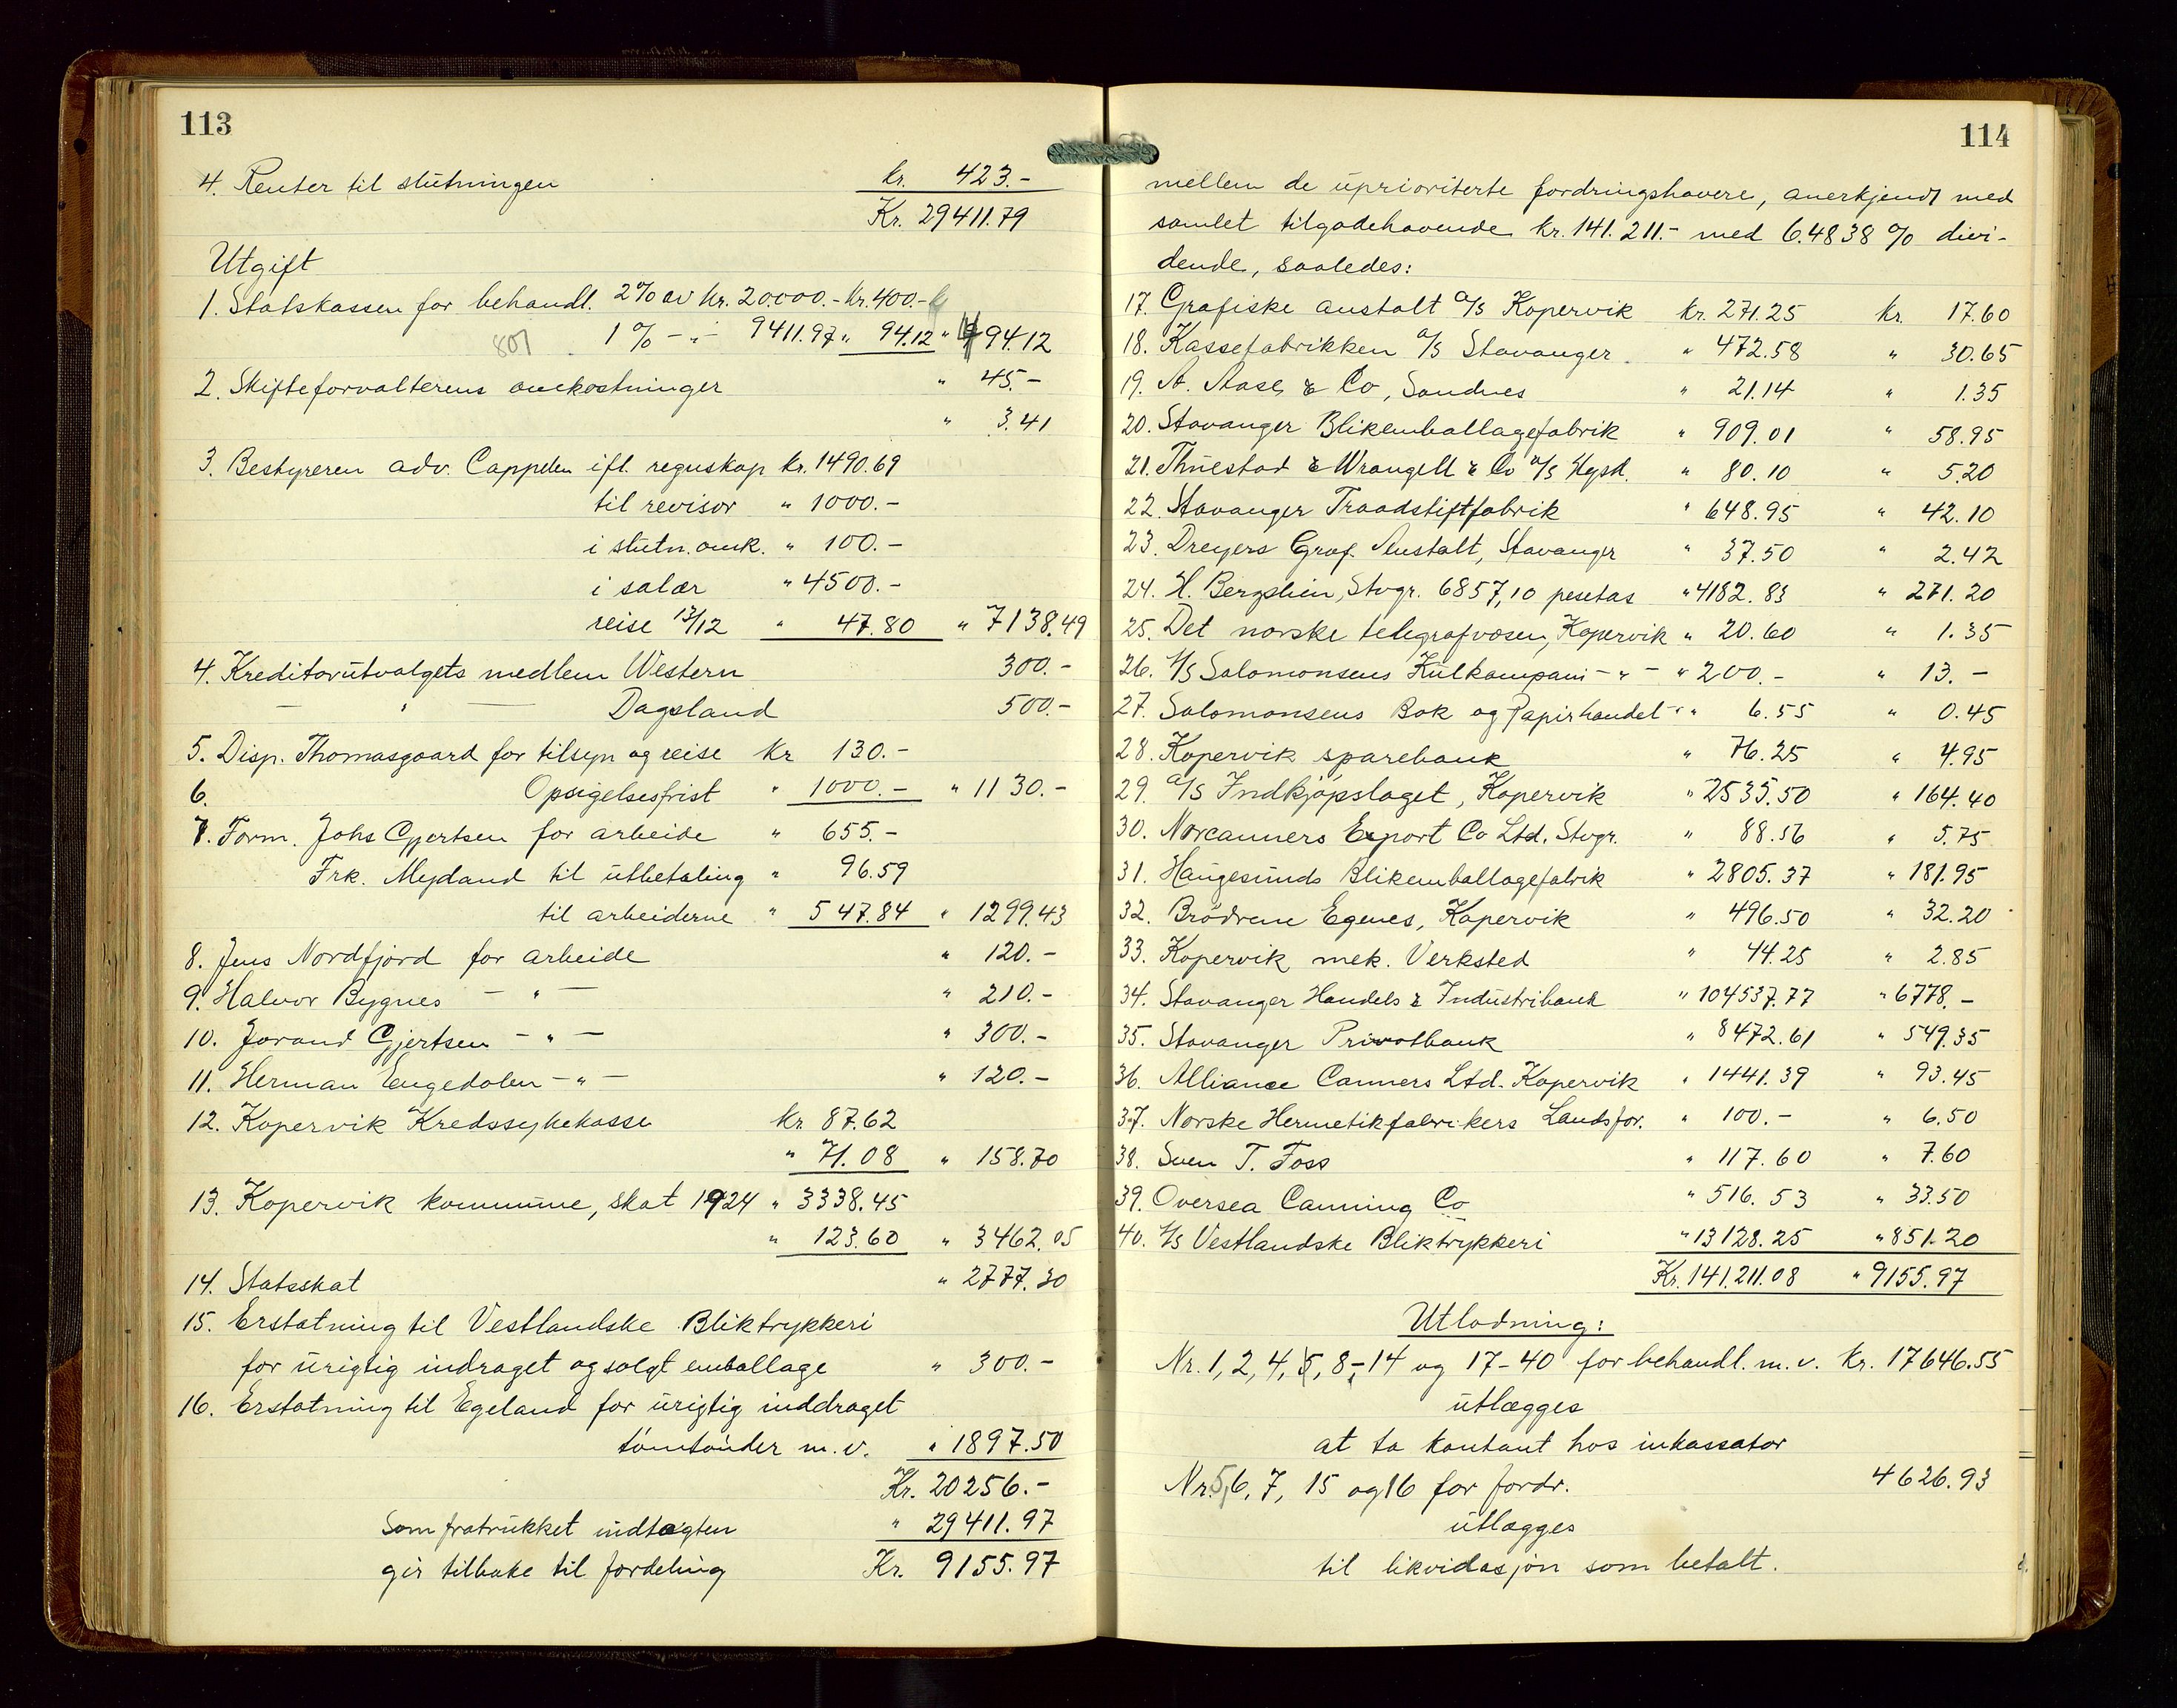 113
4. Renter til slutningen kr. 423.-
Kr. 29411.79
Utgift
1. Statskassen for behandl. 2% av kr. 20000.- kr. 400.-
801 1% - " - 9411.97 " 94.12 " 494.12
2. Skifteforvalterens omkostninger " 45.-
" 3.41
3. Bestyreren adv. Cappelen ifl. regnskap kr. 1490.69
til revisor " 1000.-
i slutn. omk. " 100.-
i salær " 4500.-
reise 13/12 " 47.80 " 7138.49
4. Kreditorutvalgets medlem Western 300.-
— " — Dagsland 500.-
5. Disp. Thomasgaard for tilsyn og reise Kr 130.-
6. Opsigelsesfrist " 1000.- " 1130.-
7. Form. Johs Gjertsen for arbeide " 655.-
Frk. Mydland til utbetaling " 96.59
til arbeiderne " 547.84 " 1299.43
8. Jens Nordfjord for arbeide " 120.-
9. Halvor Bygnes — " — " 210.-
10. Jorand Gjertsen - " - " 300.-
11. Herman Engedalen - " - " 120.-
12. Kopervik Kredssykekasse kr. 87.62
" 71.08 " 158.70
13. Kopervik kommune, skat 1924 " 3338.45
" 123.60 " 3462.05
14. Statsskat " 2777.30
15. Erstatning til Vestlandske Bliktrykkeri
for urigtig indraget og solgt emballage " 300.-
16. Erstatning til Egeland for urigtig inddraget
tomtønder m.v. " 1897.50
Kr. 20256.-
Som fratrukket indtægten " 29411.97
gir tilbake til fordeling Kr. 9155.97
114
mellem de uprioriterte fordringshavere, anerkjendt med
samlet tilgodehavende kr. 141.211.- med 6.4838 % divi-
dende, saaledes:
17. Grafiske anstalt a/s Kopervik kr. 271.25 kr. 17.60
18. Kassefabrikken a/s Stavanger " 472.58 " 30.65
19. A. Aase & Co, Sandnes " 21.14 " 1.35
20. Stavanger Blikemballagefabrik " 909.01 " 58.95
21. Thuestad & Wrangell & Co a/s Hgsd. " 80.10 " 5.20
22. Stavanger Traadstiftfabrik " 648.95 " 42.10
23. Dreyers Graf. Anstalt, Stavanger " 37.50 " 2.42
24. H. Bergslien, Stvgr. 6857,10 pesetas " 4182.83 " 271.20
25. Det norske telegrafvæsen, Kopervik " 20.60 " 1.35
26. A/S Salomonsens Kulkompani - " - " 200.- " 13.-
27. Salomonsens Bok og Papirhandel " " 6.55 " 0.45
28. Kopervik sparebank " 76.25 " 4.95
29. a/s Indkjøpslaget, Kopervik " 2535.50 " 164.40
30. Norcanners Export Co Ltd. Stvgr. " 88.56 " 5.75
31. Haugesunds Blikemballagefabrik " 2805.37 " 181.95
32. Brødrene Egenes, Kopervik " 496.50 " 32.20
33. Kopervik mek. Verksted " 44.25 " 2.85
34. Stavanger Handels & Industribank " 104537.77 " 6778.-
35. Stavanger Privatbank " 8472.61 " 549.35
36. Alliance Canners Ltd. Kopervik " 1441.39 " 93.45
37. Norske Hermetikfabrikers Landsfor. " 100.- " 6.50
38. Sven T. Foss " 117.60 " 7.60
39. Oversea Canning Co " 516.53 " 33.50
40. A/S Vestlandske Bliktrykkeri " 13128.25 " 851.20
Kr. 141.211.08 " 9155.97
Utlodning:
Nr. 1, 2, 4, 5, 8-14 og 17-40 for behandl. m.v. kr. 17646.55
utlægges
at ta kontant hos inkassator
Nr. 5, 6, 7, 15 og 16 for fordr. 4626.93
utlægges
til likvidasjon som betalt.